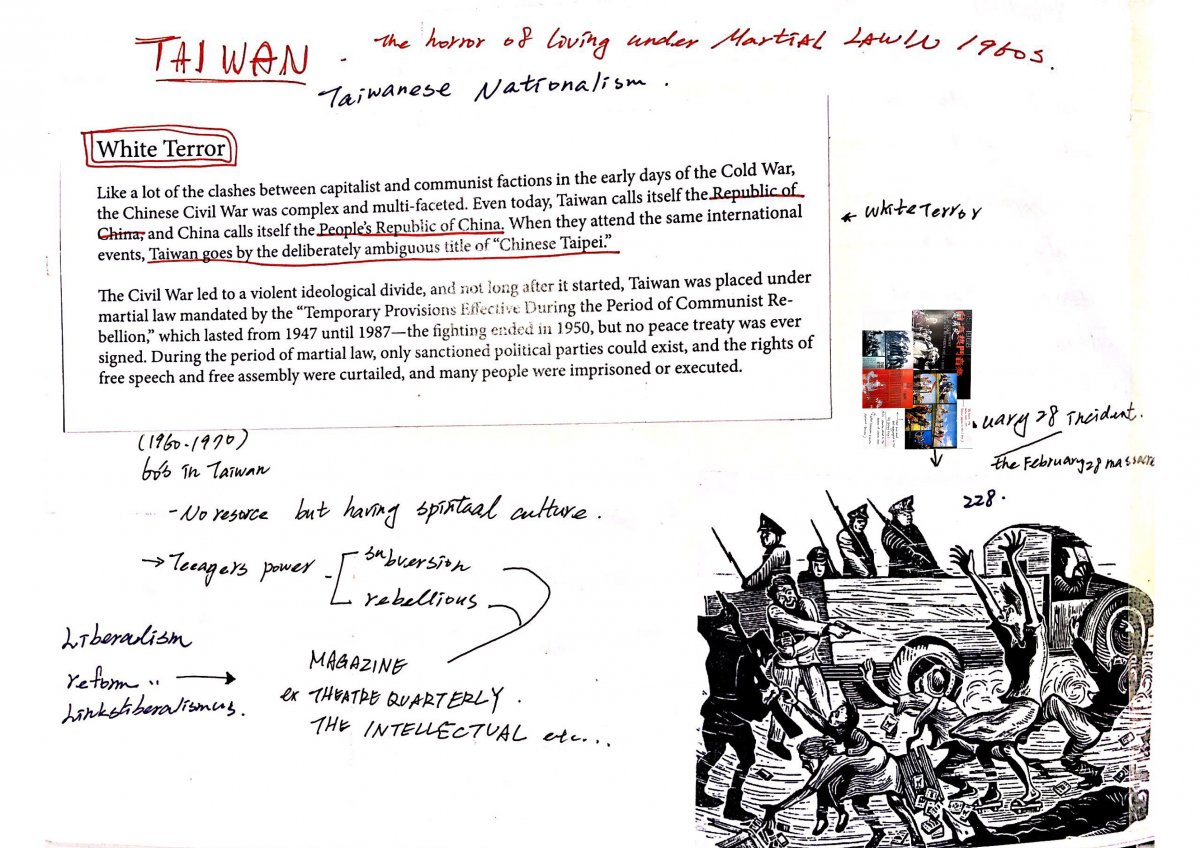 TAIWAN . The horror of living under MARTIAL LAW IN 1960s.
Taiwanese Nationalism .
White Terror
Like a lot of the clashes between capitalist and communist factions in the early days of the Cold War,
the Chinese Civil War was complex and multi-faceted. Even today, Taiwan calls itself the Republic of
China, and China calls itself the People's Republic of China. When they attend the same international
events, Taiwan goes by the deliberately ambiguous title of “Chinese Taipei.”
The Civil War led to a violent ideological divide, and not long after it started, Taiwan was placed under
martial law mandated by the “Temporary Provisions Effective During the Period of Communist Re-
bellion,” which lasted from 1947 until 1987—the fighting ended in 1950, but no peace treaty was ever
signed. During the period of martial law, only sanctioned political parties could exist, and the rights of
free speech and free assembly were curtailed, and many people were imprisoned or executed.
← White Terror
uary 28 incident.
the February 28 massacre
228.
(1960-1970)
60s in Taiwan
- No resorce but having spiritaal culture .
→ Teeagers power - subversion
rebellious
Liberalism
reform
Linksliberalismus.
MAGAZINE
ex THEATRE QUARTERLY .
THE INTELLECTUAL etc...